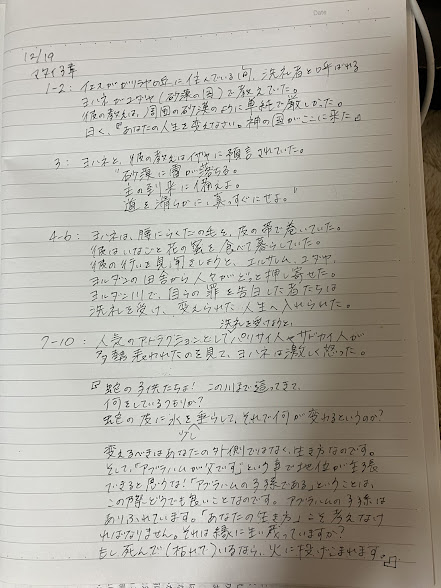 12/19
マタイ3章
1-2: イエスがガリラヤの丘に住んでいる間、洗礼者と呼ばれる
ヨハネがユダヤ(砂漠の国)で教えていた。
彼の教えは、周囲の砂漠のように単純で厳しかった。
曰く、『あなたの人生を変えなさい。神の国がここに来た』
3: ヨハネと、彼の教えはイザヤに預言されていた。
"砂漠に雷が落ちる。
主の到来に備えよ。
道を滑らかに、真っすぐにせよ。"
4-6: ヨハネは、腰にらくだの毛を、皮の帯で巻いていた。
彼はいなごと花の蜜を食べて暮らしていた。
彼の行いを見、聞きしようと、エルサレム、ユダヤ、
ヨルダンの田舎から人々がどっと押し寄せた。
ヨルダン川で、自らの罪を告白した者たちは
洗礼を受け、変えられた人生へ入れられた。
洗礼を受けようと
7-10: 人気のアトラクションとしてパリサイ人やサドカイ人が
多勢表われたのを見て、ヨハネは激しく怒った。
『蛇の子供たちよ! この川まで這ってきて、
何をしているつもりか?
蛇の皮に水を垂らして、それで何が変わるというのか?
少し
変えるべきはあなたの外側ではなく、生き方なのです。
そして、「アブラハムが父です」という事で地位が主張
できると思うな!「アブラハムの子孫である」ということは、
この際どうでも良いことなのです。アブラハムの子孫は
ありふれています。「あなたの生き方」こそ考えなけ
ればなりません。それは緑に生い茂っていますか?
もし死んで(枯れて)いるなら、火に投げこまれます。』